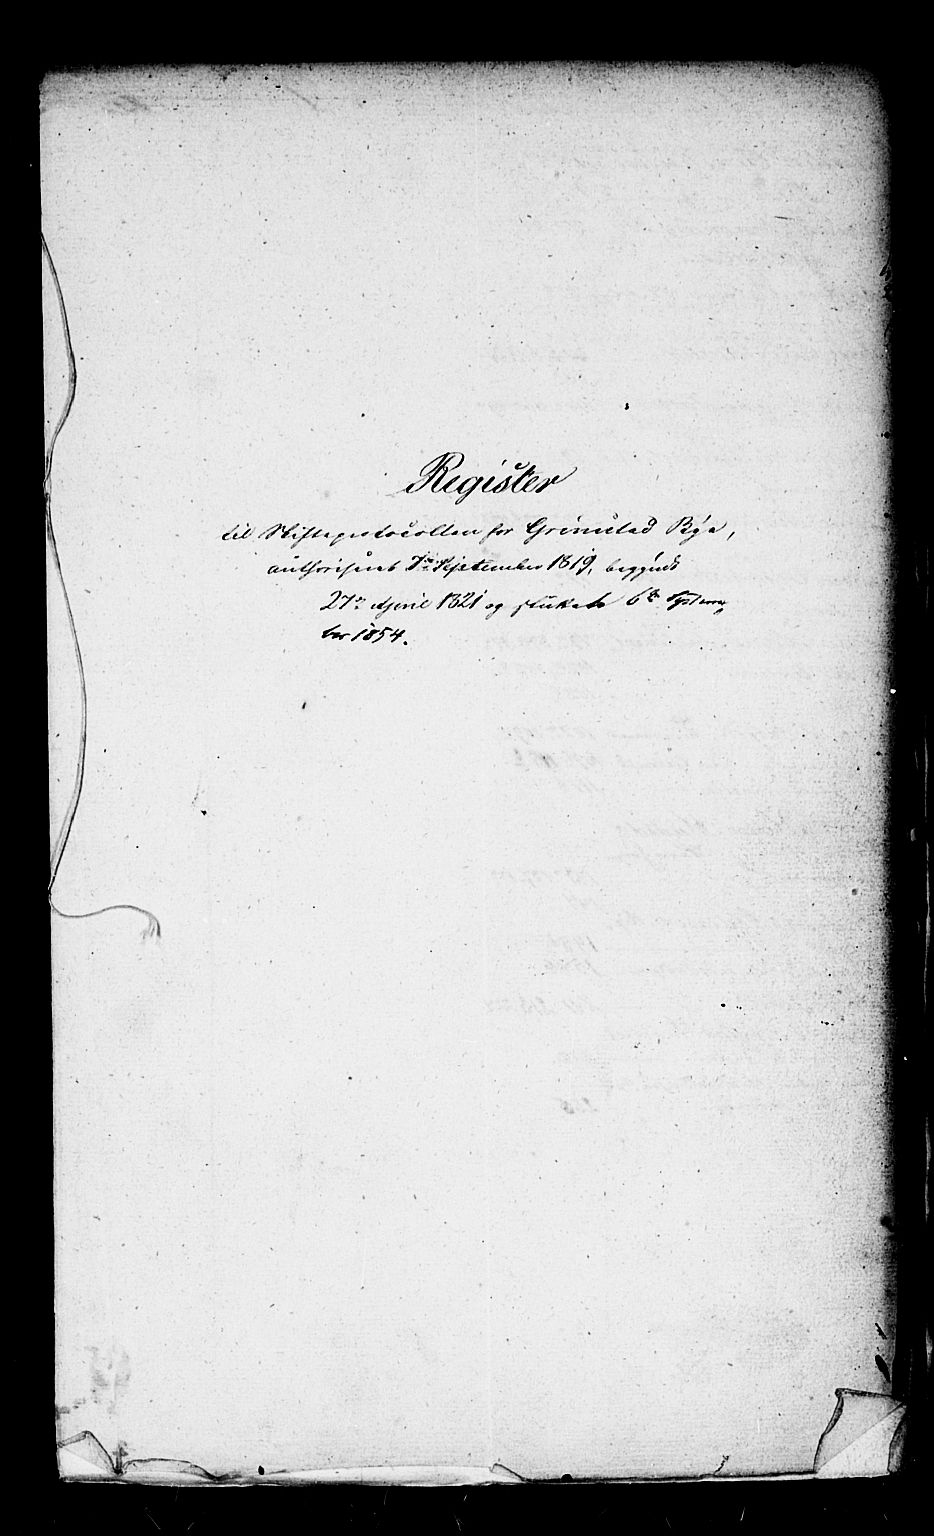 Register
til Skifteprotocollen for Grimstad Bye,
authoriseret 7de September 1819, begyndt
27de April 1821 og sluttet 6te Septem„
ber 1854.